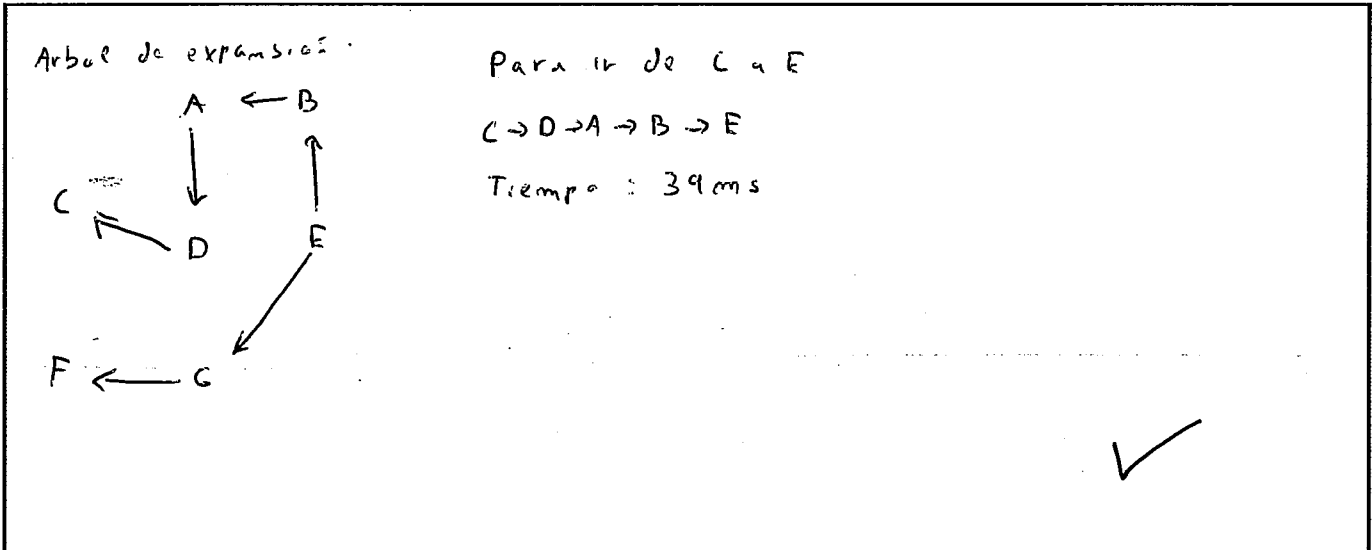 Arbol de expansión.
A ← B
C
D
E
F ← G
Para ir de C a E
C → D → A → B → E
Tiempo : 39 ms